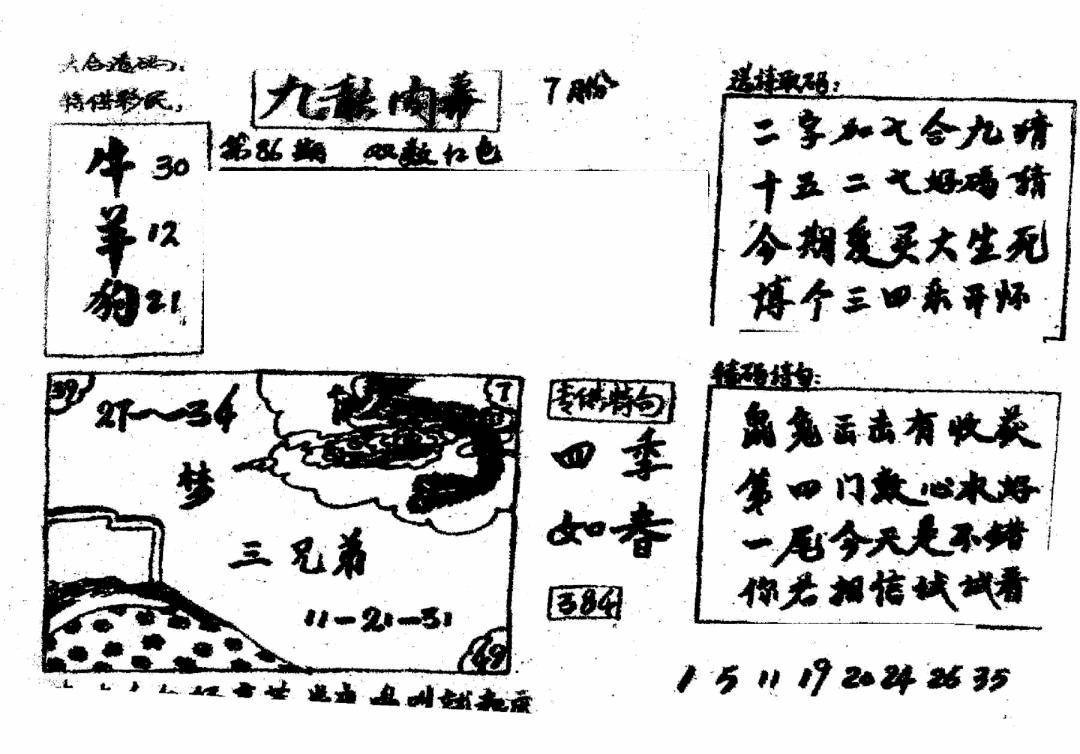 六合透码:
特供彩民,
牛 30
羊 12
狗 21
九龙内幕
7月份
第86期 双数红色
送诗取码:
二字加七合九猜
十五二七好码猜
今期爱买大生死
博个三四乐开怀
39
7
27〜34
梦
三兄弟
11-21-31
49
专供特句
四季
如春
384
特码诗句:
鼠兔出击有收获
第四门数心水好
一尾今天是不错
你若相信试试看
1 5 11 19 20 24 26 35